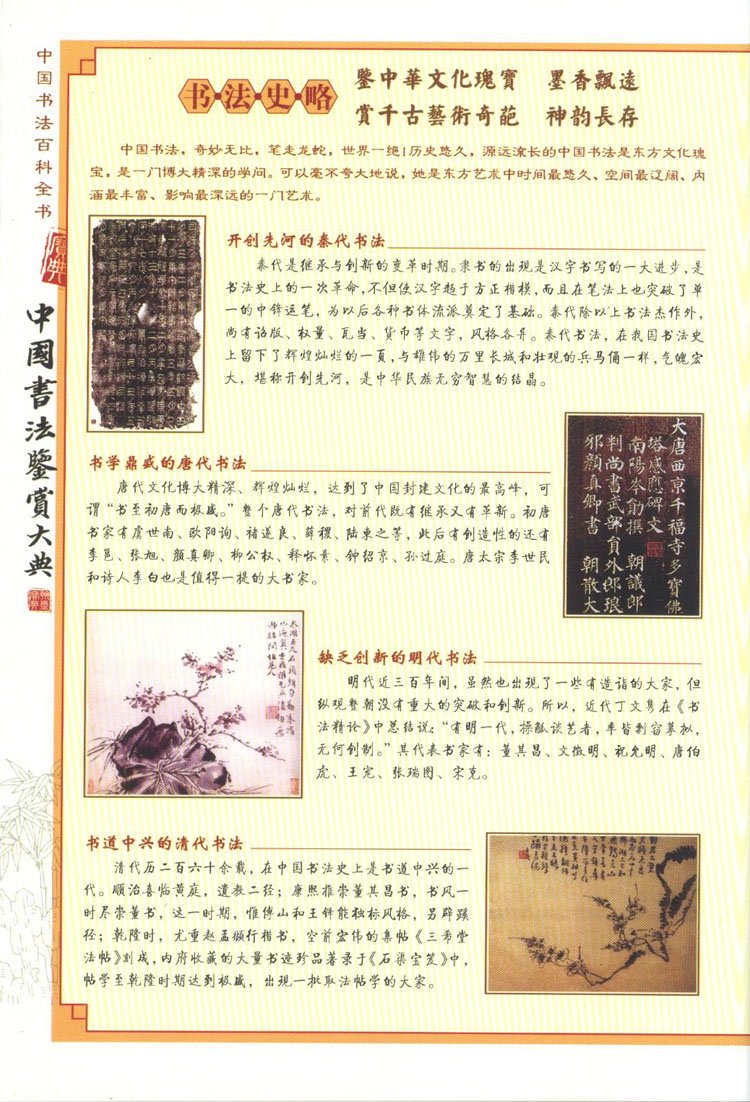 中国书法百科全书
寶典
中國書法鑒賞大典
书·法·史·略
鑒中華文化瑰寶 墨香飄遠
賞千古藝術奇葩 神韵長存
中国书法，奇妙无比，笔走龙蛇，世界一绝！历史悠久，源远流长的中国书法是东方文化瑰
宝，是一门博大精深的学问。可以毫不夸大地说，她是东方艺术中时间最悠久、空间最辽阔、内
涵最丰富、影响最深远的一门艺术。
开创先河的秦代书法
秦代是继承与创新的变革时期。隶书的出现是汉字书写的一大进步，是
书法史上的一次革命，不但使汉字趋于方正楷模，而且在笔法上也突破了单
一的中锋运笔，为以后各种书体流派奠定了基础。秦代除以上书法杰作外，
尚有诏版、权量、瓦当、货币等文字，风格各异。秦代书法，在我国书法史
上留下了辉煌灿烂的一頁，与雄伟的万里长城和壮观的兵马俑一样，气魄宏
大，堪称开创先河，是中华民族无穷智慧的结晶。
大唐西京千福寺多寶佛
塔感應碑文
南陽岑勛撰 朝議郎
判尚書武部員外郎琅
邪顏真卿書 朝散大
书学鼎盛的唐代书法
唐代文化博大精深、辉煌灿烂，达到了中国封建文化的最高峰，可
谓“书至初唐而极盛。”整个唐代书法，对前代既有继承又有革新。初唐
书家有虞世南、欧阳询、褚遂良、薛稷、陆柬之等，此后有创造性的还有
李邕、张旭、颜真卿、柳公权、释怀素、钟绍京、孙过庭。唐太宗李世民
和诗人李白也是值得一提的大书家。
缺乏创新的明代书法
明代近三百年间，虽然也出现了一些有造诣的大家，但
纵观整朝没有重大的突破和创新。所以，近代丁文隽在《书
法精论》中总结说：“有明一代，操觚谈艺者，率皆剽窃摹拟，
无何创制。”其代表书家有：董其昌、文徵明、祝允明、唐伯
虎、王宠、张瑞图、宋克。
书道中兴的清代书法
清代历二百六十余载，在中国书法史上是书道中兴的一
代。顺治喜临黄庭，遗教二经；康熙推崇董其昌书，书风一
时尽崇董书，这一时期，惟傅山和王铎能独标风格，另辟蹊
径；乾隆时，尤重赵孟頫行楷书，空前宏伟的集帖《三希堂
法帖》刻成，内府收藏的大量书迹珍品著录于《石渠宝笈》中，
帖学至乾隆时期达到极盛，出现一批取法帖学的大家。